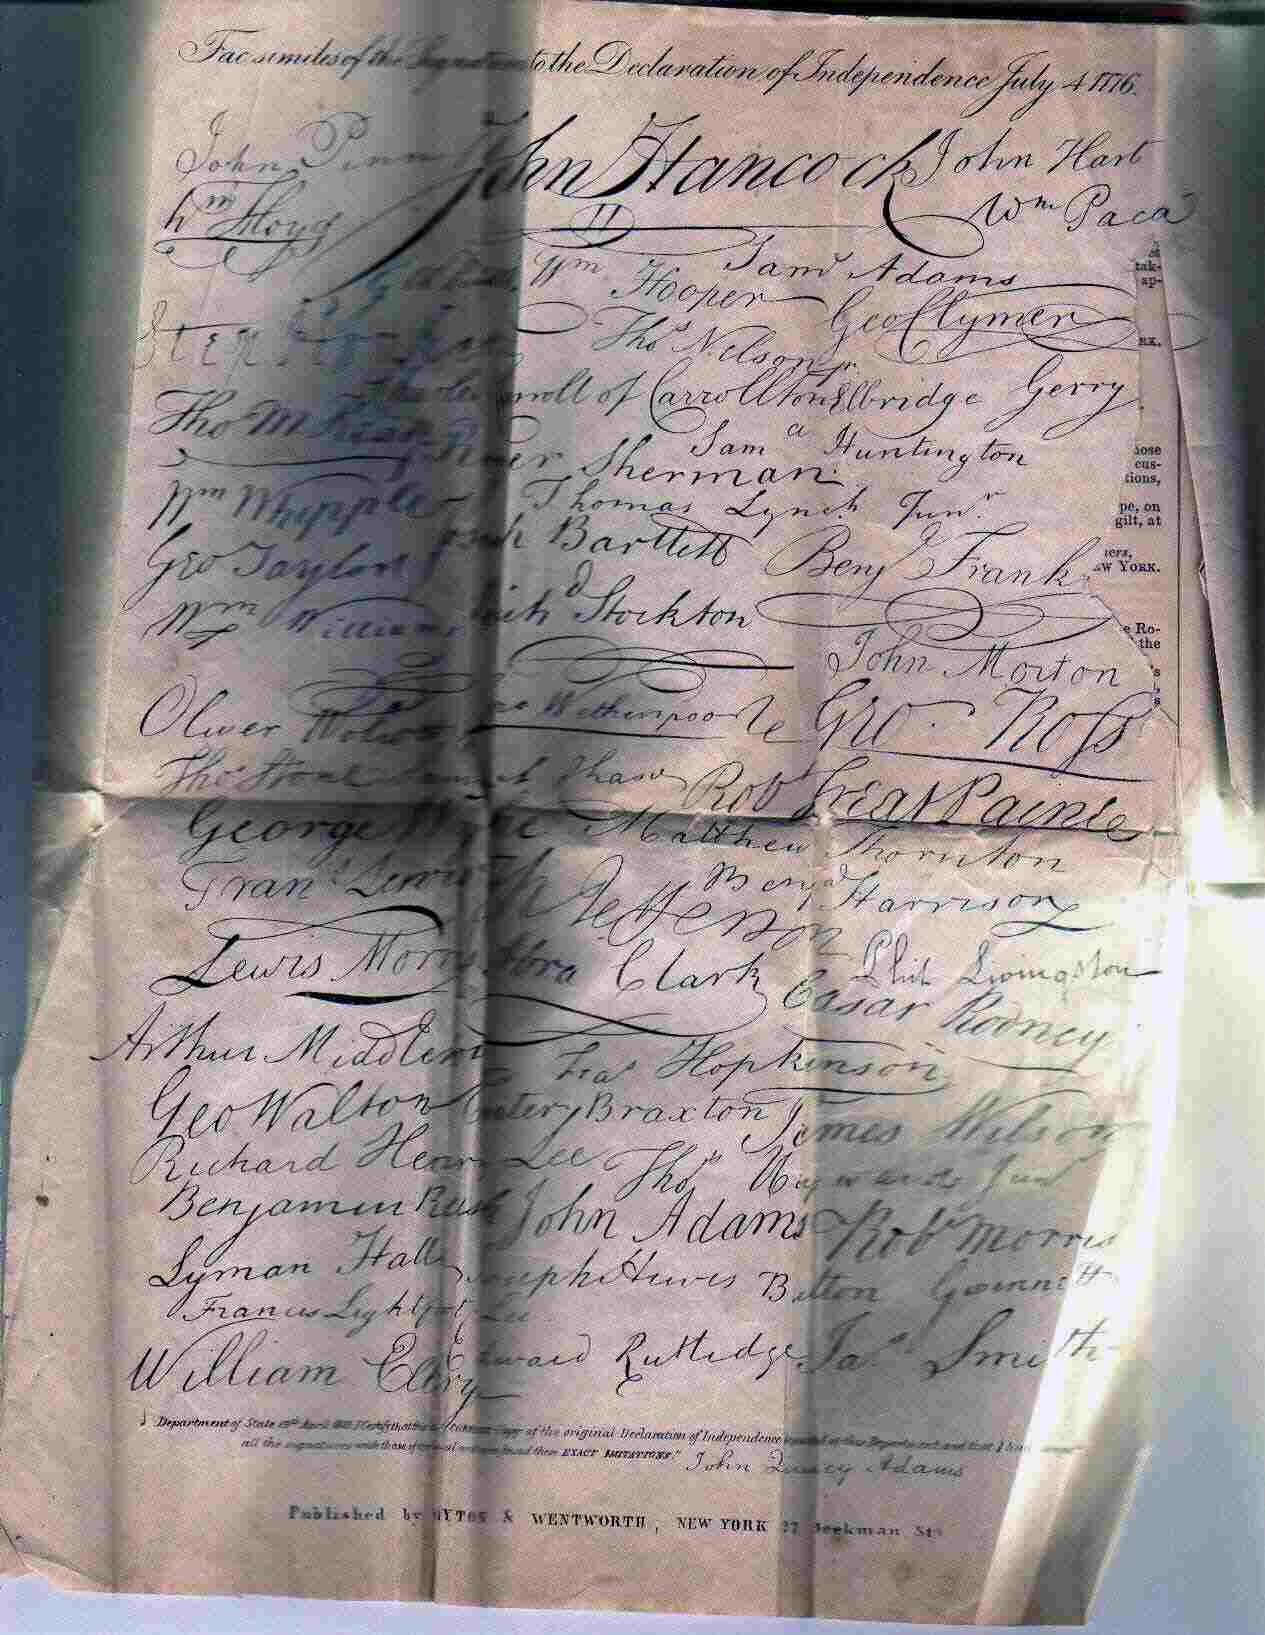 Fac similes of the Signatures to the Declaration of Independence July 4 1776.
John Penn John Hancock John Hart
Wm Floyd Wm Paca
Geo Read Wm Hooper Saml Adams
Step Hopkins Thos Nelson jr. Geo Clymer
Charles Carroll of Carrollton Elbridge Gerry
Tho M:Kean Roger Sherman Saml Huntington
Wm Whipple Thomas Lynch Junr
Geo Taylor Josiah Bartlett Benj Frank
Wm Williams Richd Stockton
John Morton
Oliver Wolcott Jno Witherspoon Geo. Ross
Thos Stone Samuel Chase Robt Treat Paine
George Wythe Matthew Thornton
Frans Lewis Th Jefferson Benj Harrison
Lewis Morris Abra Clark Phil Livingston
Cæsar Rodney
Arthur Middleton Fras Hopkinson
Geo Walton Carter Braxton James Wilson
Richard Henry Lee Thos Heyward Junr
Benjamin Rush John Adams Robt Morris
Lyman Hall Joseph Hewes Button Gwinnett
Francis Lightfoot Lee
William Ellery Edward Rutledge Jas Smith
Department of State April I Certify that this is a CORRECT copy of the original Declaration of Independence deposited at this Department and that I have
all the signatures with those of the original and found them EXACT IMITATIONS." John Quincy Adams
Published by & WENTWORTH, NEW YORK 27 Beekman St
tak-
ap-
RK.
hose
cus-
tions,
pe, on
gilt, at
W YORK.
e Ro-
the